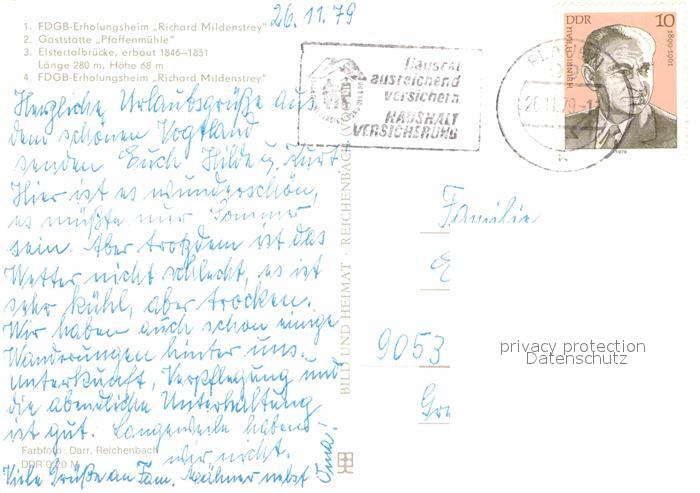 26.11.79
1. FDGB-Erholungsheim „Richard Mildenstrey"
2. Gaststätte „Pfaffenmühle"
3. Elstertalbrücke, erbaut 1846-1851
Länge 280 m, Höhe 68 m
4. FDGB-Erholungsheim „Richard Mildenstrey"
Herzliche Urlaubsgrüße aus
dem schönen Vogtland
senden Euch Hilde u. Kurt
Hier ist es wunderschön,
es müßte nur Sommer
sein. Aber trotzdem ist das
Wetter nicht schlecht, es ist
sehr kühl, aber trocken.
Wir haben auch schon einige
Wanderungen hinter uns.
Unterkunft, Verpflegung und
die abendliche Unterhaltung
ist gut. Langeweile haben
wir nicht.
Viele Grüße an Fam. nebst Oma!
Farbfoto: Darr, Reichenbach
DDR 0,20 M
BILD UND HEIMAT · REICHENBACH (VOGTL)
Hausrat
ausreichend
versichern
HAUSHALT
VERSICHERUNG
DDR 10
HEINRICH RAU
1899-1961
1979
PLAUEN
26.11.79
Familie
9053
privacy protection
Datenschutz